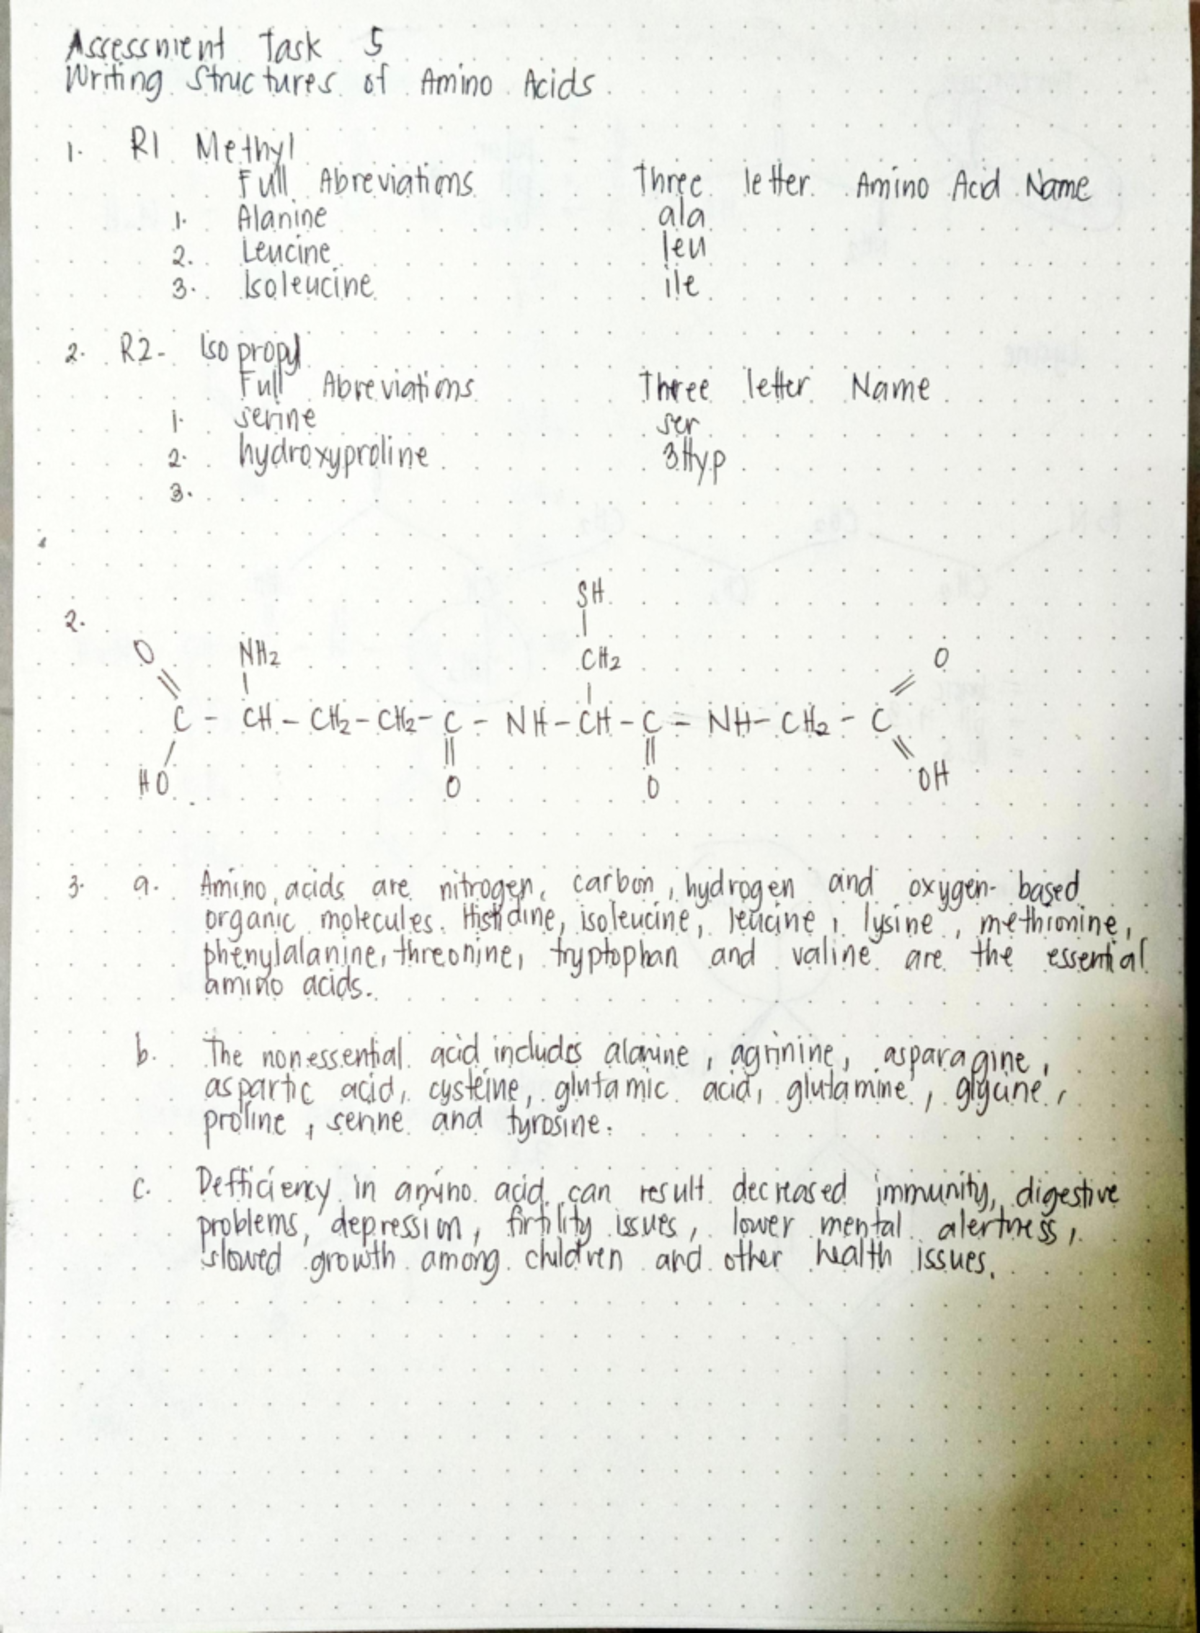 Assessment Task 5
Writing Structures of Amino Acids
1. R1 Methyl
Full Abreviations Three letter Amino Acid Name
1. Alanine ala
2. Leucine leu
3. Isoleucine ile
2. R2- Isopropyl
Full Abreviations Three letter Name
1. serine ser
2. hydroxyproline 3Hyp
3.
2.
SH
O NH2 CH2 O
C - CH - CH2 - CH2 - C - NH - CH - C = NH - CH2 - C
HO O O OH
3. a. Amino acids are nitrogen, carbon, hydrogen and oxygen-based
organic molecules. Histidine, isoleucine, leucine, lysine, methionine,
phenylalanine, threonine, tryptophan and valine are the essential
amino acids.
b. The nonessential acid includes alanine, agrinine, asparagine,
aspartic acid, cysteine, glutamic acid, glutamine, glycine,
proline, serine and tyrosine.
c. Defficiency in amino acid can result decreased immunity, digestive
problems, depression, firtility issues, lower mental alertness,
slowed growth among children and other health issues.